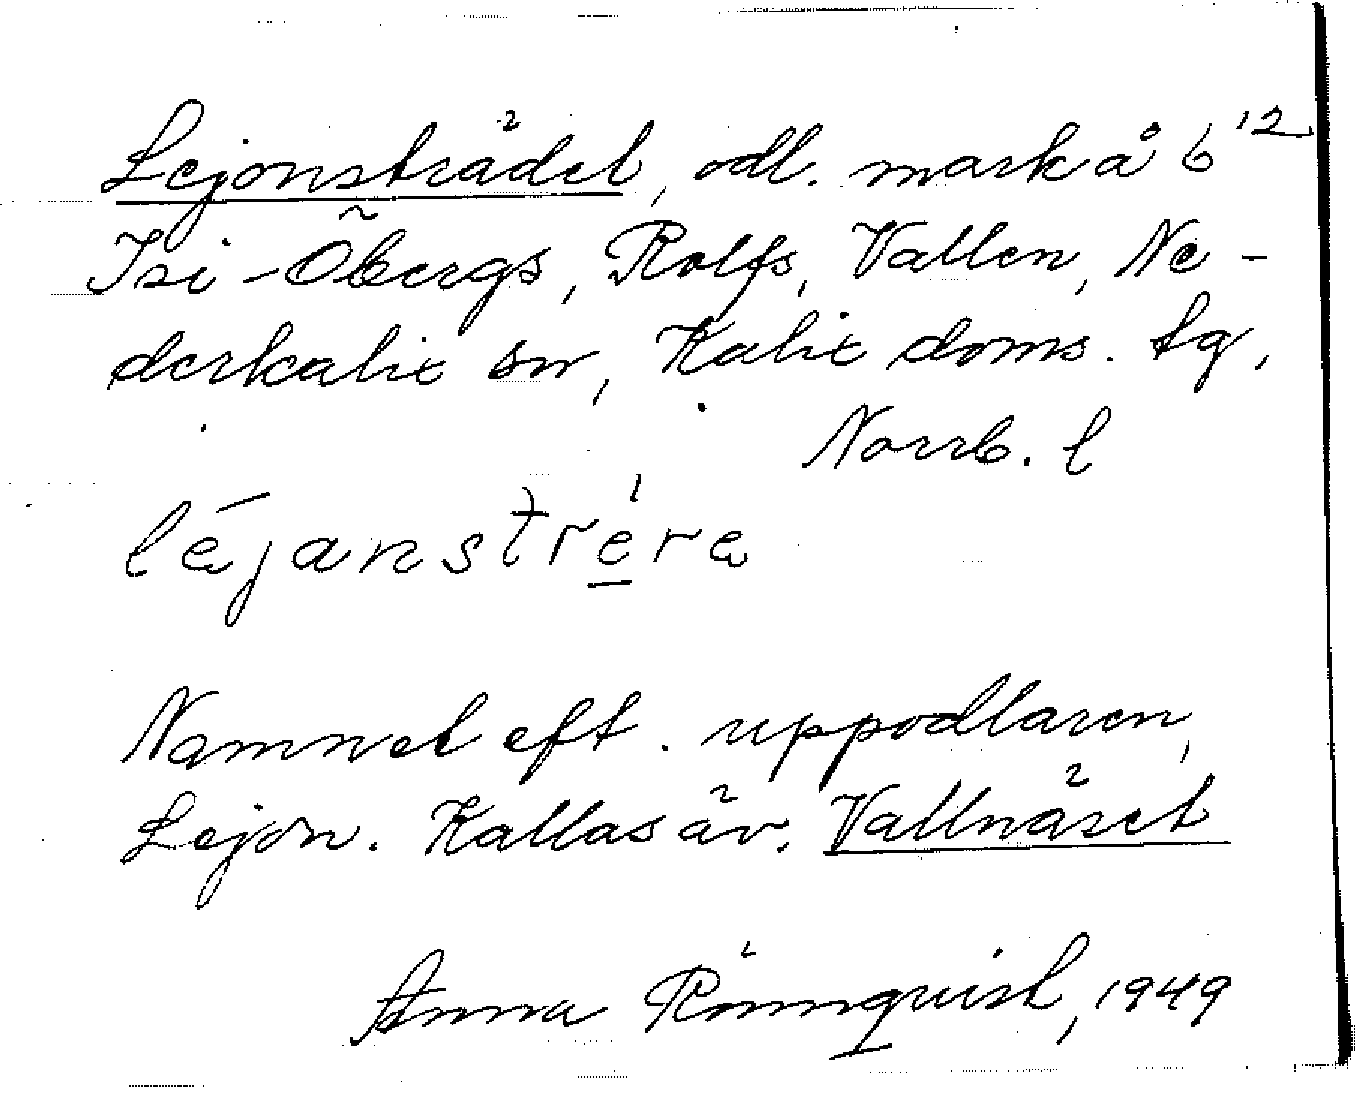 Lejonsträdet, odl. mark å 6¹²
Isi-Öbergs, Rolfs, Vallen, Ne-
derkalix sn, Kalix doms. tg,
Norrb. l
léjanstrere
Namnet eft. uppodlaren,
Lejon. Kallas äv. Vallnäset
Anna Rönnquist, 1949